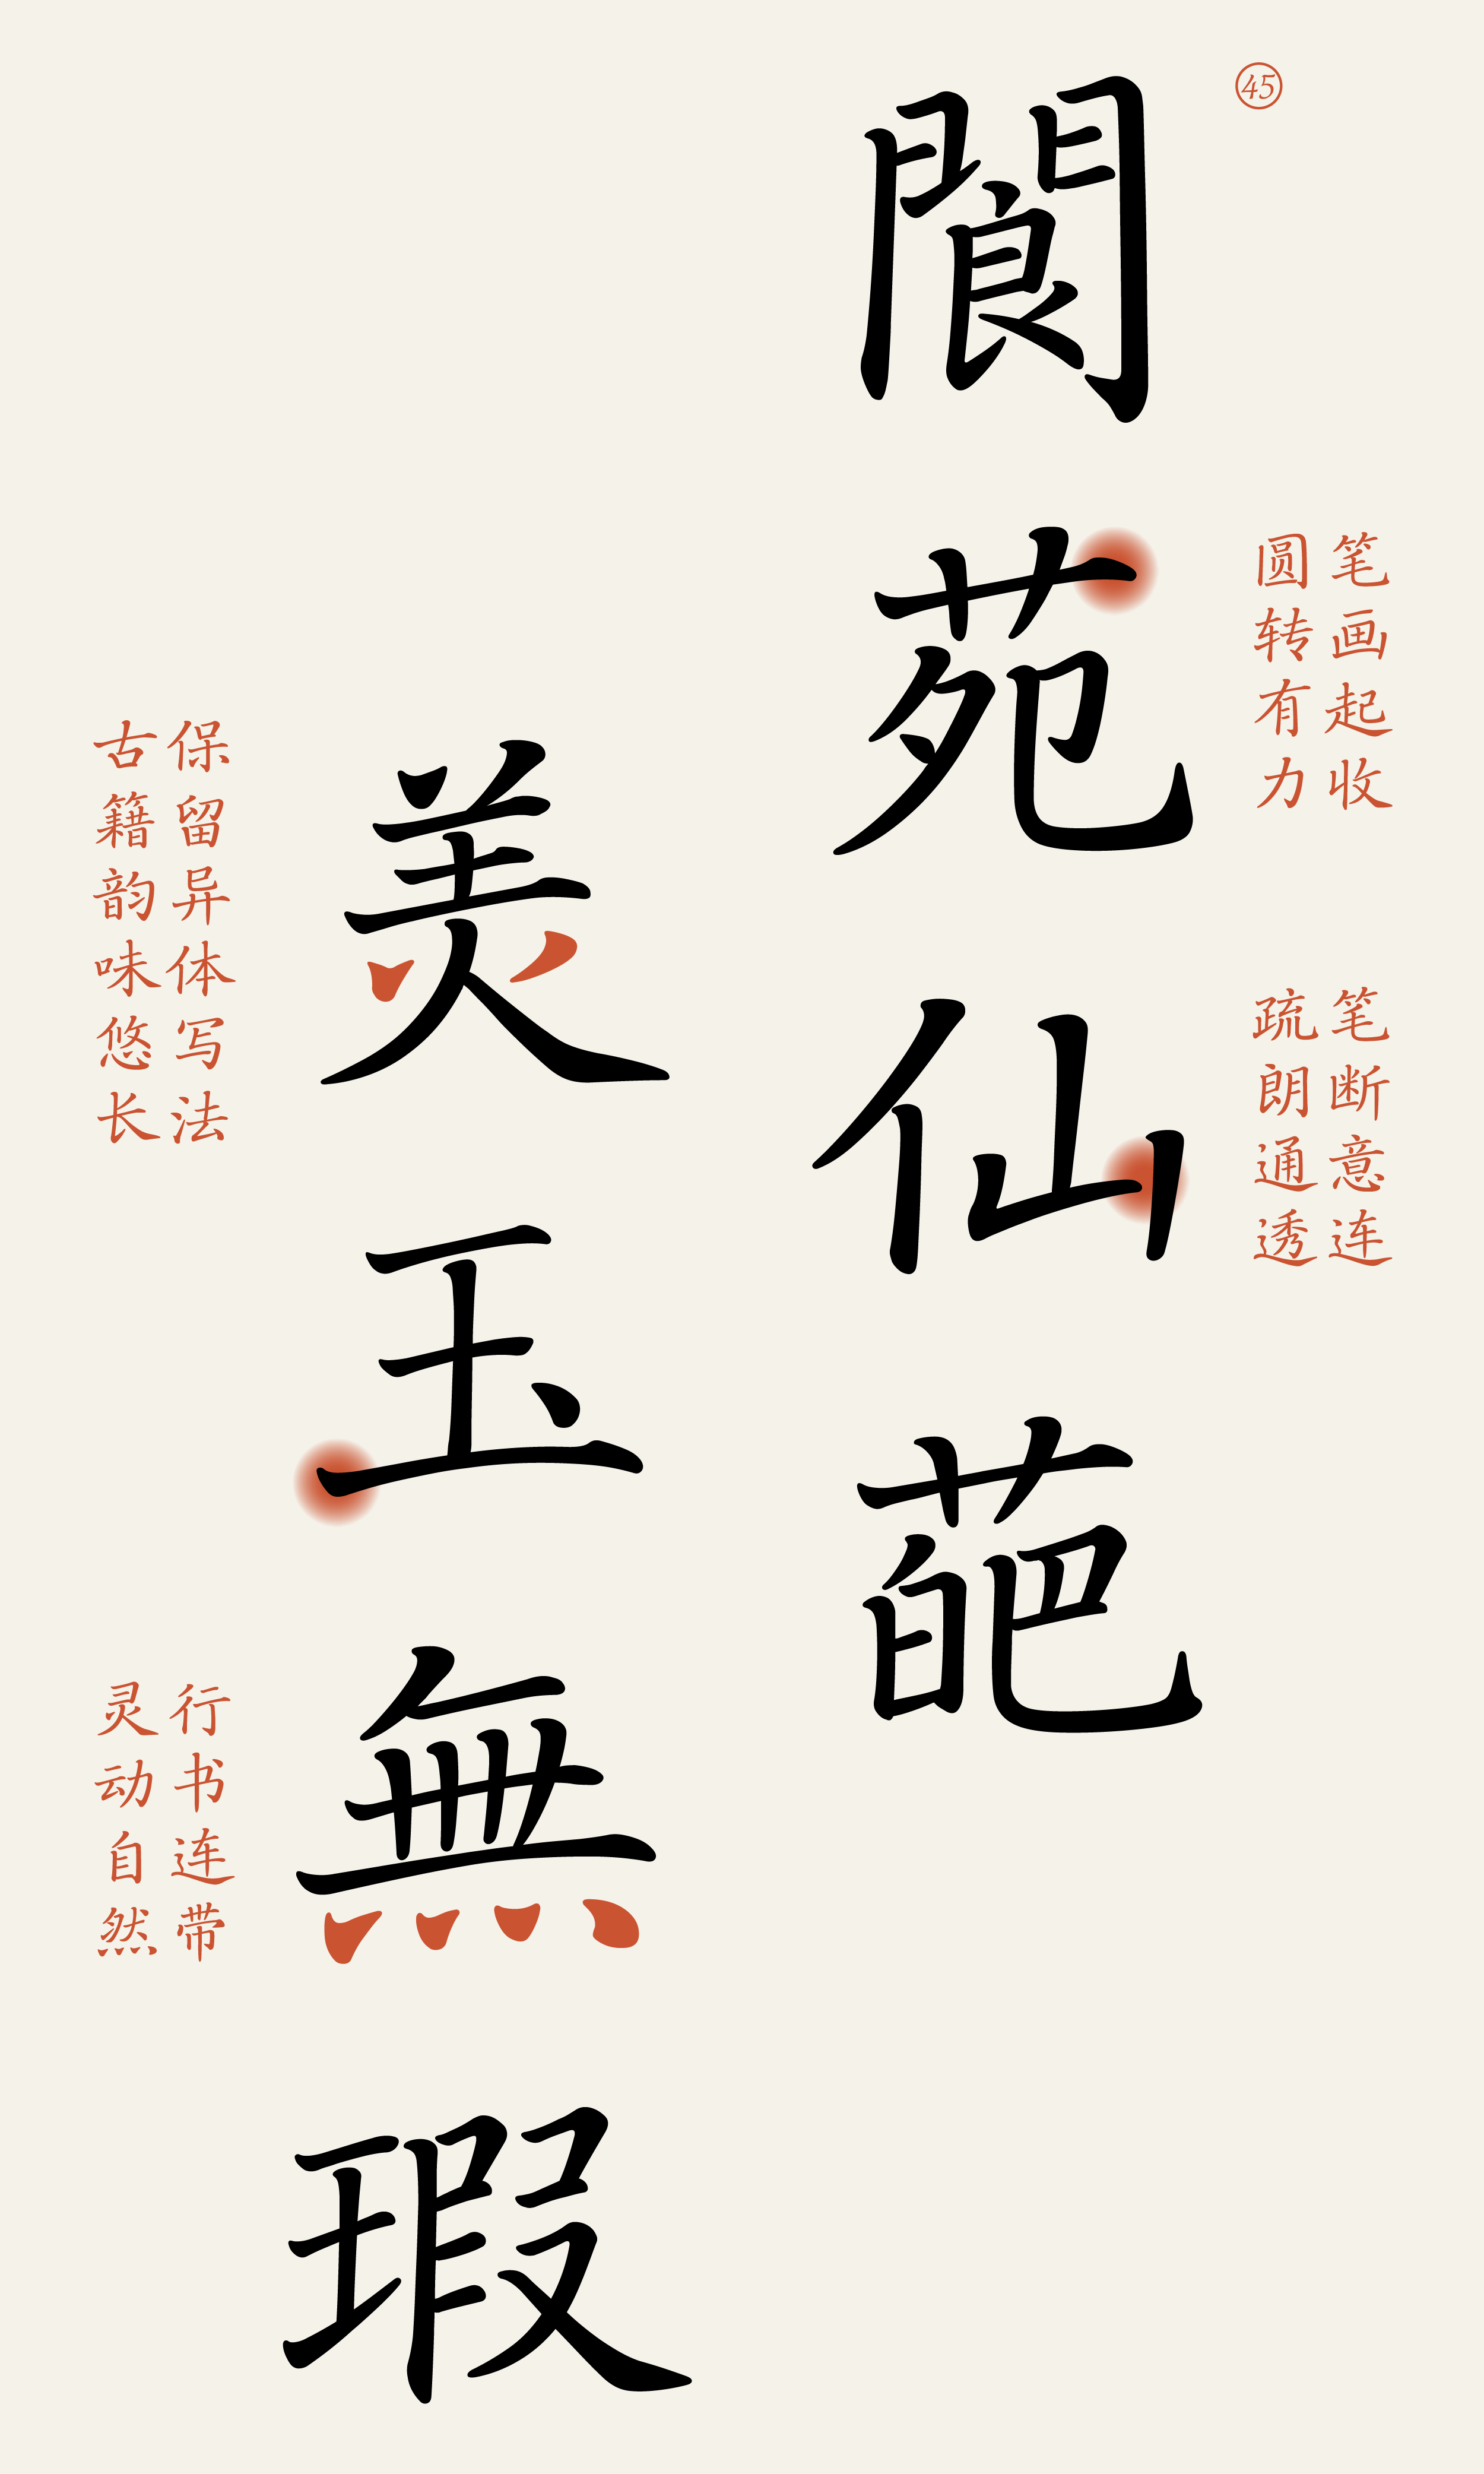 45
笔画起收
圆转有力
笔断意连
疏朗通透
閬苑仙葩
羙玉無瑕
保留异体写法
古籍韵味悠长
行书连带
灵动自然